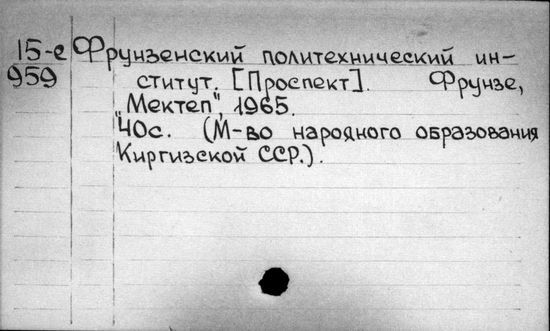 15-е Фрунзенский политехнический ин-
959 ститут. [Проспект]. Фрунзе,
„Мектеп", 1965.
40с. (М-во народного образования
Киргизской ССР.).